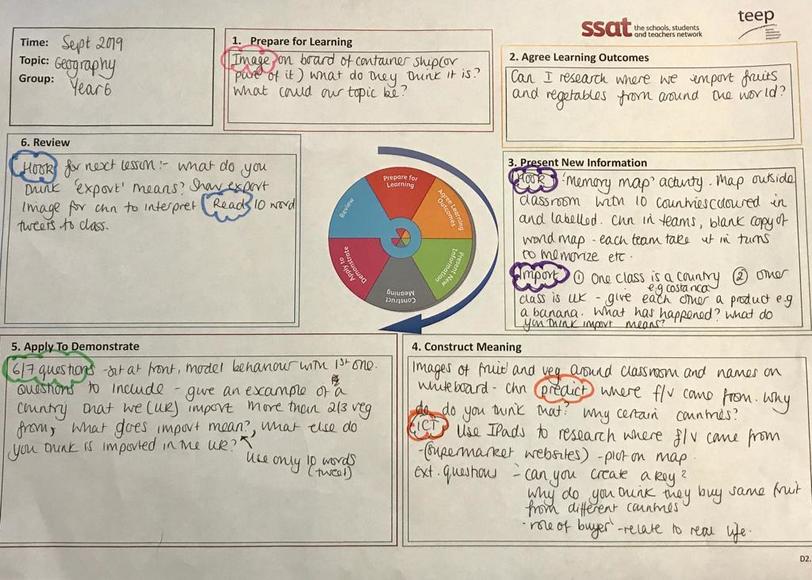 ssat the schools, students
and teachers network
teep
Time: Sept 2019
Topic: Geography
Group: Year 6
1. Prepare for Learning
Image on board of container ship (or
part of it) what do they think it is?
What could our topic be?
2. Agree Learning Outcomes
Can I research where we import fruits
and vegetables from around the world?
3. Present New Information
Hook 'Memory map' activity. Map outside
classroom with 10 countries coloured in
and labelled. Chn in teams, blank copy of
world map - each team take it in turns
to memorize etc.
Import ① One class is a country ② other
e.g costa rica
class is UK - give each other a product e.g
a banana. What has happened? What do
you think import means?
4. Construct Meaning
Images of fruit and veg around classroom and names on
whiteboard - chn predict where f/v came from. Why
do do you think that? Why certain countries?
ICT Use IPads to research where f/v came from
- (supermarket websites) - plot on map.
ext. questions - can you create a key?
Why do you think they buy same fruit
from different countries
'role of buyer' - relate to real life.
5. Apply To Demonstrate
6/7 questions - sit at front, model behaviour with 1st one.
questions to include - give an example of a
country that we (UK) import more than 2/3 veg
from, what does import mean?, what else do
you think is imported in the UK?
Use only 10 words
(tweet)
6. Review
Hook for next lesson:- what do you
think 'export' means? Show export
image for chn to interpret Read 10 word
tweets to class.
Prepare for
Learning
Agree Learning
Outcomes
Present New
Information
Construct
Meaning
Apply to
Demonstrate
Review
D2.